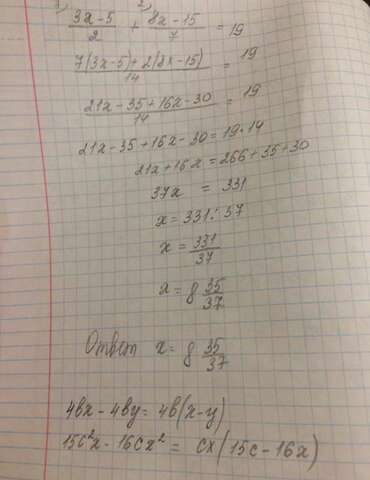 (3x-5)/2 + (8x-15)/7 = 19
(7(3x-5)+2(8x-15))/14 = 19
(21x-35+16x-30)/14 = 19
21x-35+16x-30=19·14
21x+16x=266+35+30
37x = 331
x=331:37
x=331/37
x=8 35/37
Ответ x=8 35/37
4вx-4вy=4в(x-y)
15c²x-16cx²= cx(15c-16x)